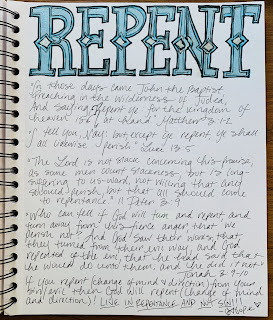 REPENT
"In those days came John the Baptist,
preaching in the wilderness of Judea,
And saying, Repent ye: for the kingdom of
heaven is at hand." Matthew 3:1-2
"I tell you, Nay: but, except ye repent, ye shall
all likewise perish." Luke 13:5
"The Lord is not slack concerning his promise,
as some men count slackness; but is long-
suffering to us-ward, not willing that any
should perish, but that all should come
to repentance." II Peter 3:9
"Who can tell if God will turn and repent and
turn away from his fierce anger that we
perish not? And God saw their works, that
they turned from their evil way; and God
repented of the evil, that he had said that
he would do unto them; and he did it not."
Jonah 3:9-10
If you repent (change of mind & direction) from your
sin/
then God will repent (change of mind
and direction)! LIVE IN REPENTANCE AND NOT SIN!!!